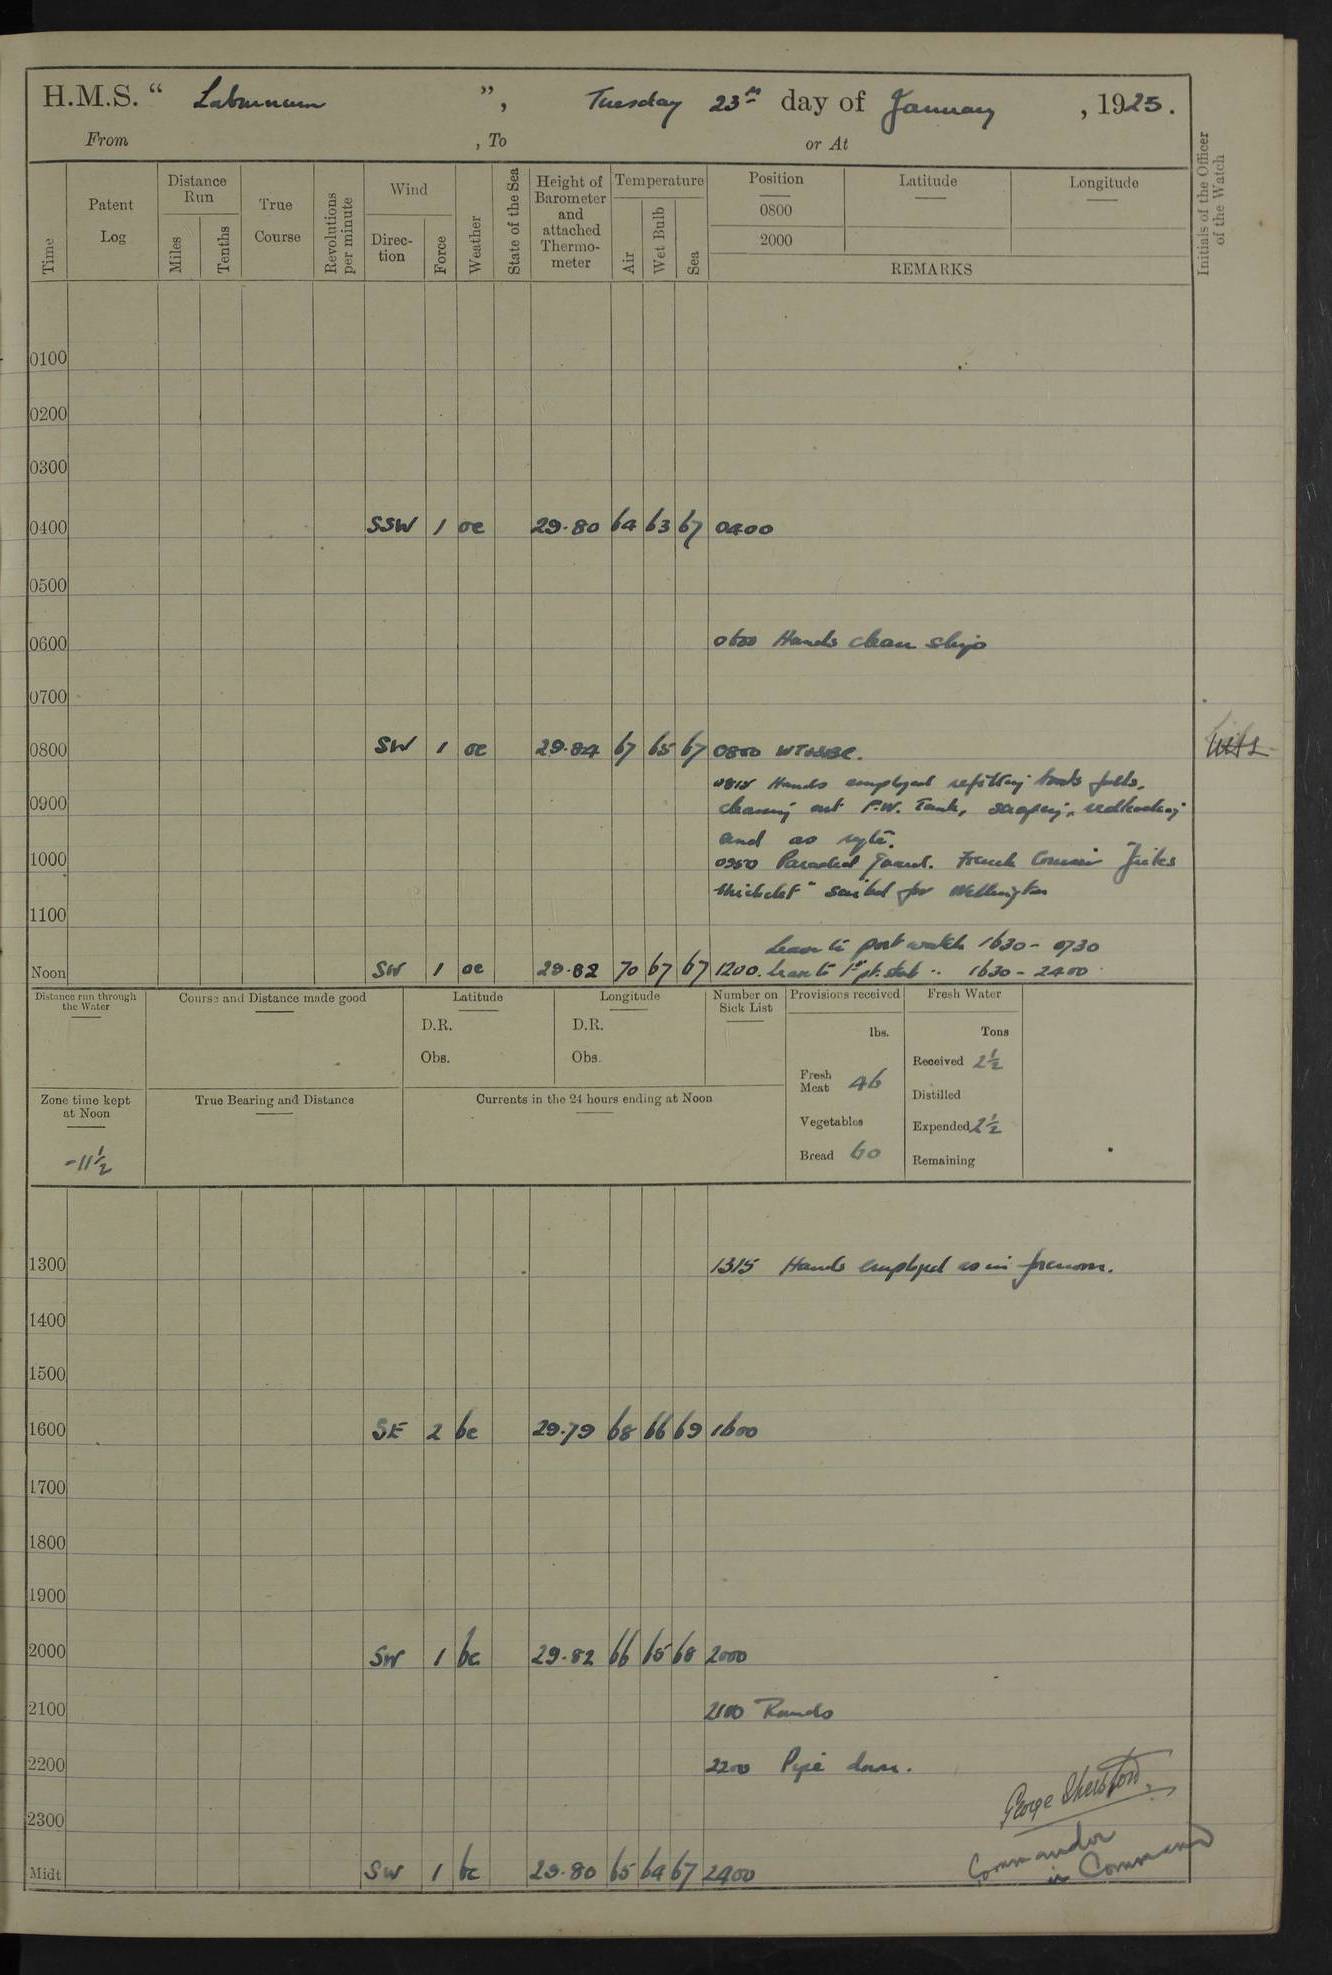 H.M.S. “ Laburnum ”, Tuesday 23rd day of January , 1925.
From , To or At
Time
Patent Log
Distance Run
Miles
Tenths
True Course
Revolutions per minute
Wind
Direction
Force
Weather
State of the Sea
Height of Barometer and attached Thermometer
Temperature
Air
Wet Bulb
Sea
Position
0800
2000
Latitude
Longitude
REMARKS
Initials of the Officer of the Watch
0100
0200
0300
0400 SSW 1 oc 29.80 64 63 67 0400
0500
0600 0600 Hands clean ship
0700
0800 SW 1 oc 29.84 67 65 67 0800
0815 Hands employed refitting boats falls,
0900 cleaning out F.W. Tank, scraping, redleading
and as reqte.
1000 0950 Paraded Guard. French Cruiser "Jules
Michelet" sailed for Wellington
1100
Leave to port watch 1630 - 0730
Noon SW 1 oc 29.82 70 67 67 1200. Leave to 1st pt. stbd .. 1630 - 2400
Distance run through the Water
Course and Distance made good
Latitude
D.R.
Obs.
Longitude
D.R.
Obs.
Number on Sick List
Provisions received
lbs.
Fresh Meat 46
Vegetables
Bread 60
Fresh Water
Tons
Received 2½
Distilled
Expended 2½
Remaining
Zone time kept at Noon
-11½
True Bearing and Distance
Currents in the 24 hours ending at Noon
1300 1315 Hands employed as in forenoon.
1400
1500
1600 SE 2 bc 29.79 68 66 69 1600
1700
1800
1900
2000 SW 1 bc 29.82 66 65 68 2000
2100 2100 Rounds
2200 2200 Pipe down.
2300
George
Commander
in Command
Midt SW 1 bc 29.80 65 64 67 2400